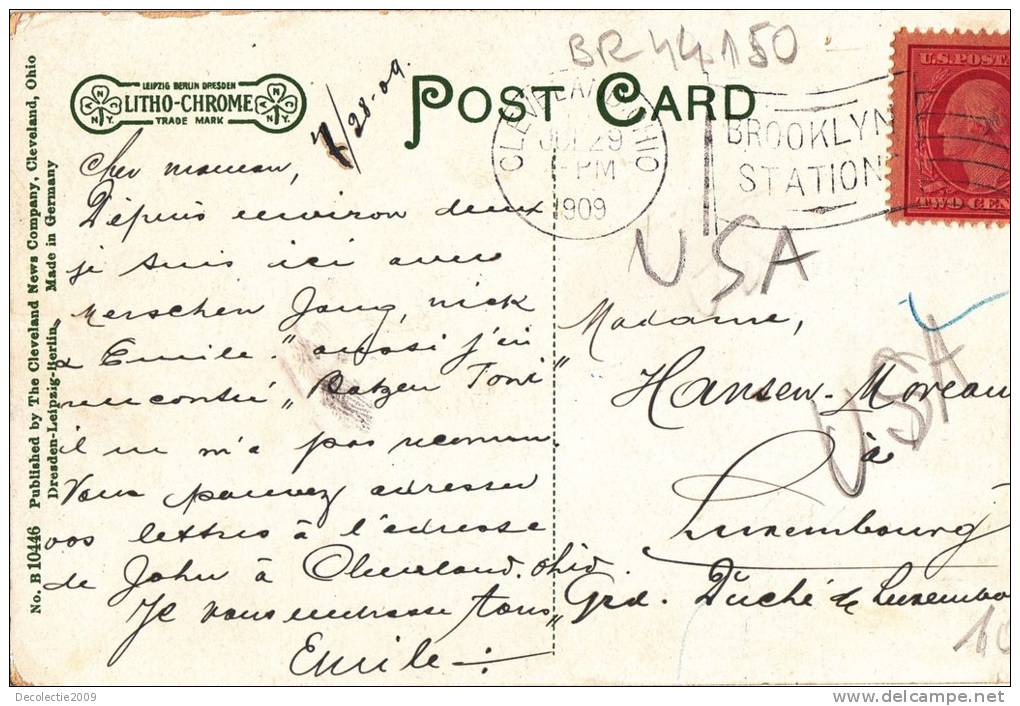 BR 44150
LEIPZIG BERLIN DRESDEN
LITHO-CHROME
TRADE MARK
7/28-09.
POST CARD
CLEVELAND, OHIO
JUL 29
-PM
1909
BROOKLYN
STATION
U.S. POSTA
TWO CEN
USA
USA
Cher maman,
Dépuis environ deux
je suis ici avec
Merschen Jang, nick
& Emile." aussi j'ai
rencontré „Batzen Toni"
il ne m'a pas reconnu.
Vous pouvez adresser
vos lettres à l'adresse
de John à Cleveland. Ohio.
Je vous embrasse tous„
Emile
Madame,
Hansen-Moreau
à
Luxembourg
Grd. Duché de Luxembo
10
No. B 10446 Published by The Cleveland News Company, Cleveland, Ohio
Dresden-Leipzig-Berlin Made in Germany
Decolectie2009
www.delcampe.net